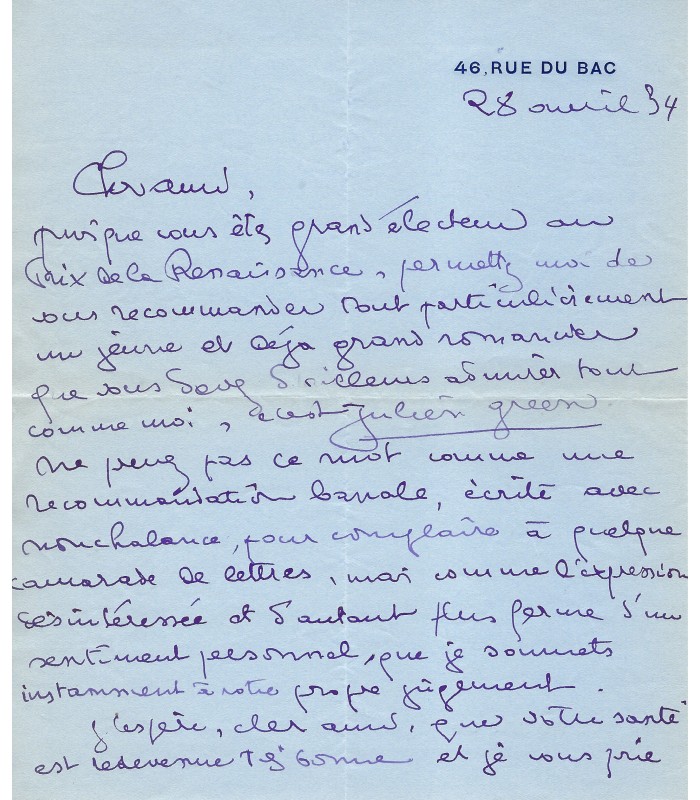 46, RUE DU BAC
28 avril 34
Cher ami,
puisque vous êtes grand électeur au
Prix de la Renaissance, permettez moi de
vous recommander tout particulièrement
un jeune et déjà grand romancier
que vous devez d'ailleurs admirer tout
comme moi, c'est Julien Green.
Ne prenez pas ce mot comme une
recommandation banale, écrite avec
nonchalance, pour complaire à quelque
camarade de lettres, mais comme l'expression
désintéressée et d'autant plus ferme d'un
sentiment personnel, que je soumets
instamment à votre propre jugement.
J'espère, cher ami, que votre santé
est redevenue très bonne et je vous prie